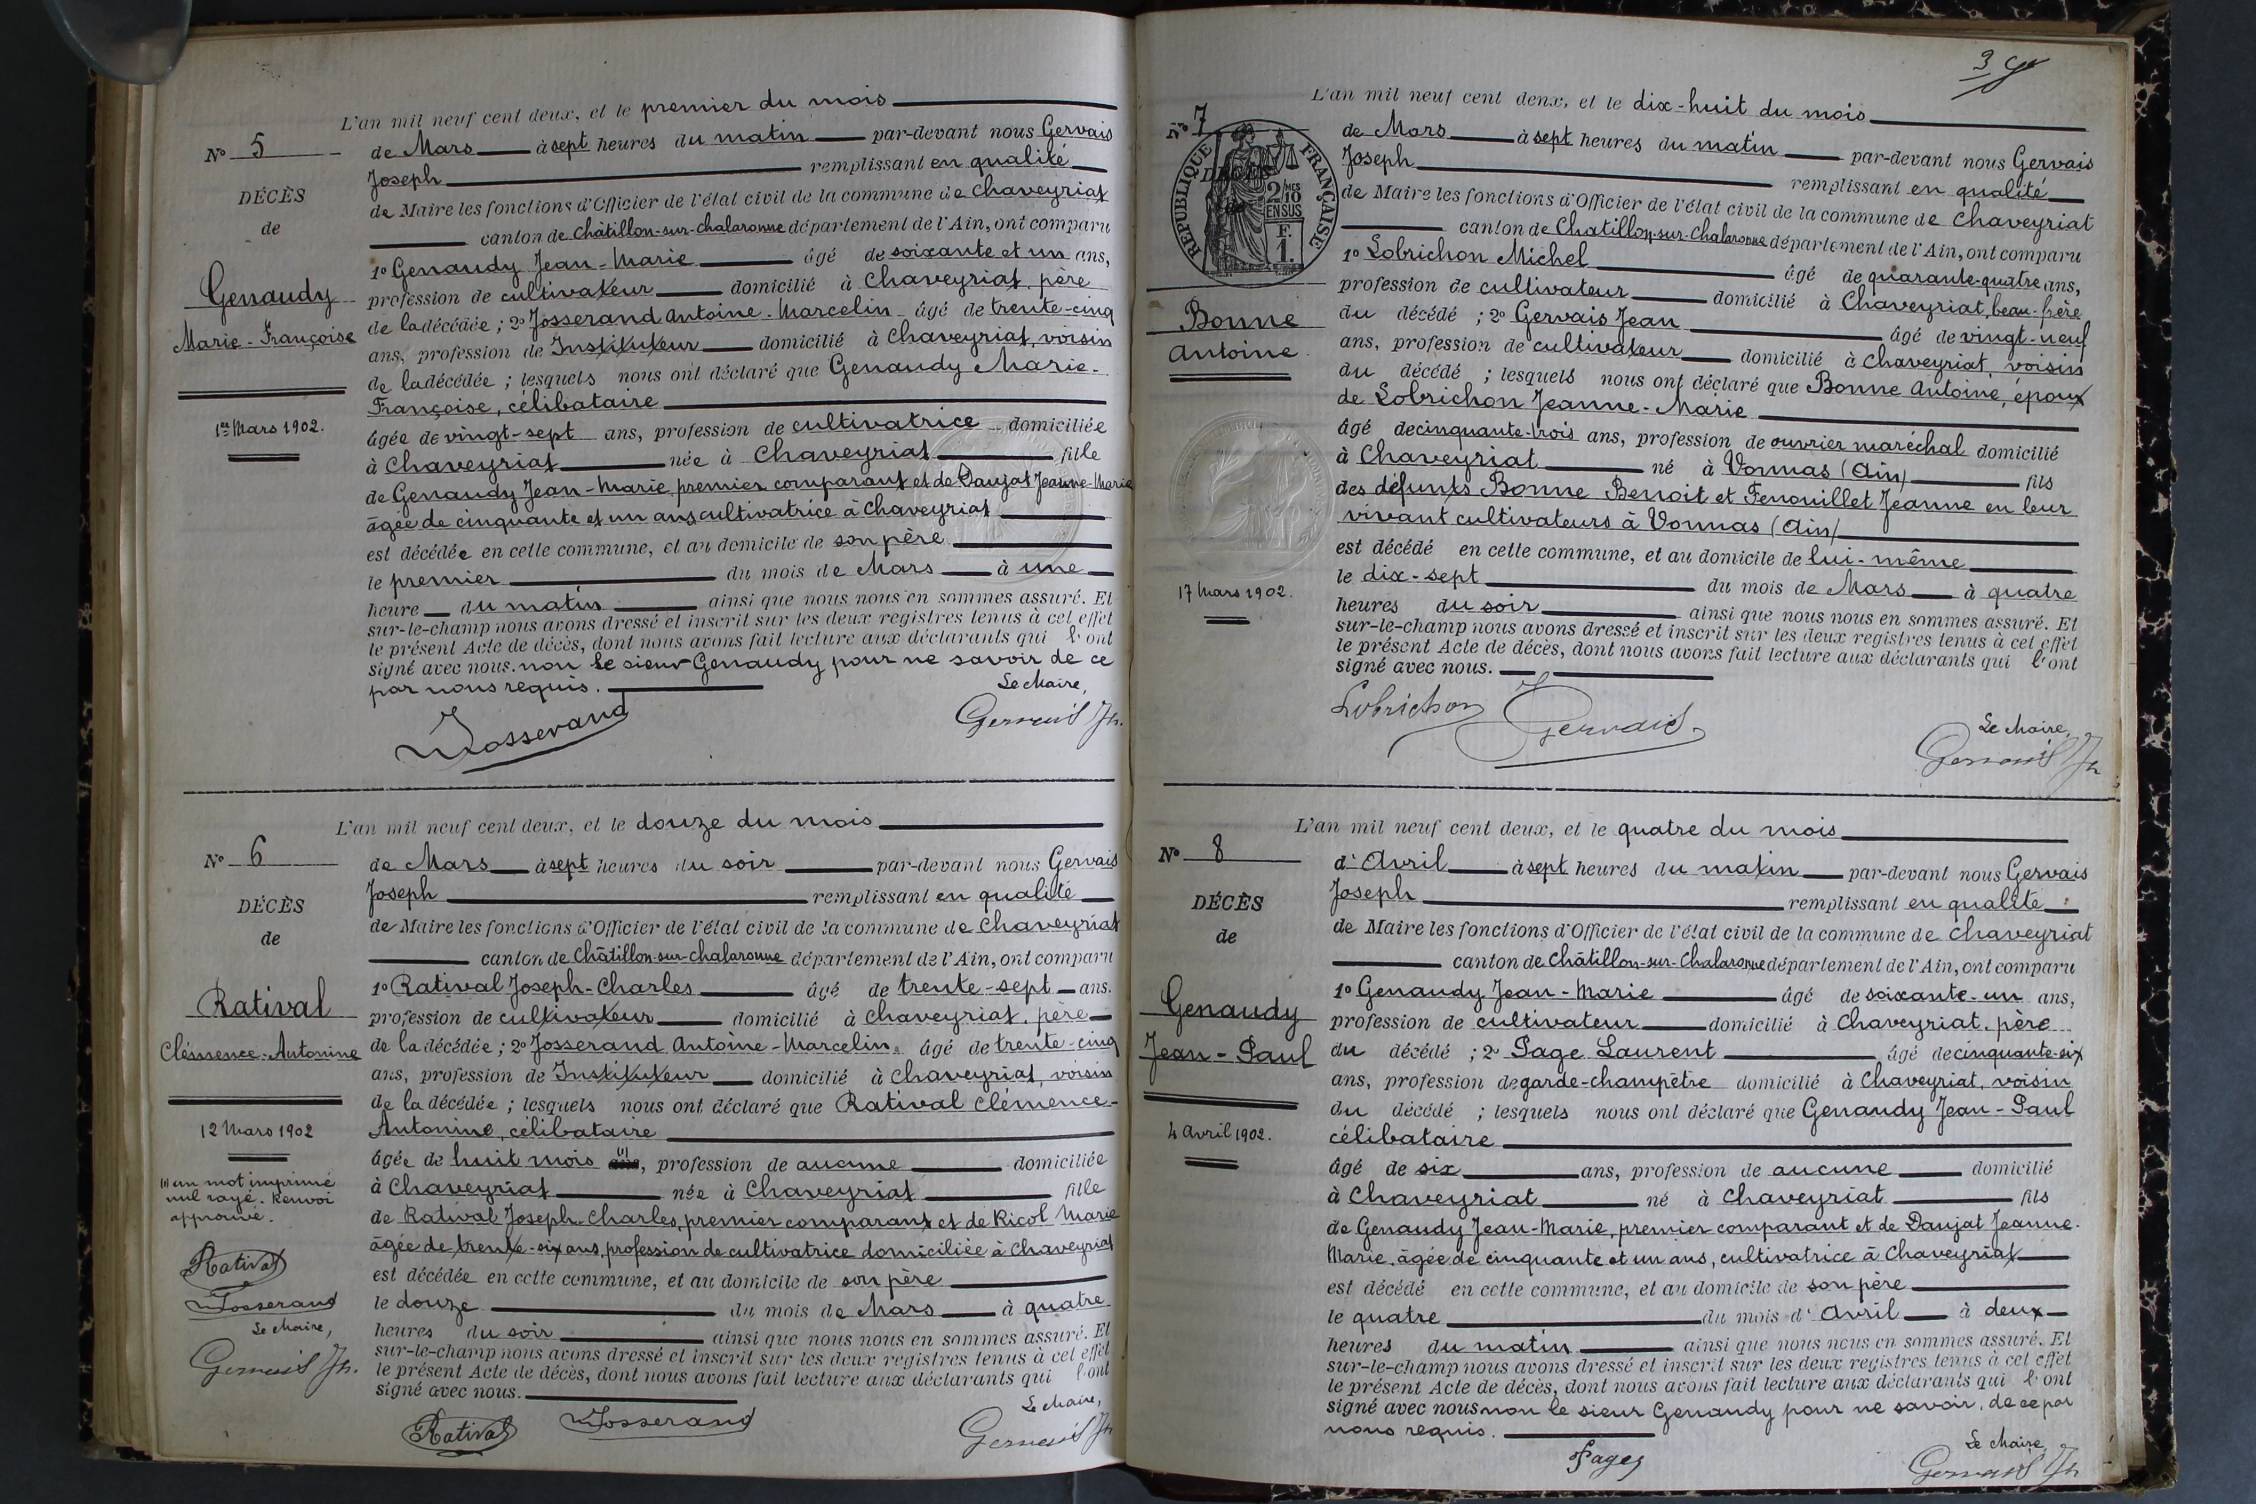 L'an mil neuf cent deux, et le premier du mois
Nº 5
de Mars à sept heures du matin par-devant nous Gervais
Joseph remplissant en qualité
DÉCÈS
de Maire les fonctions d'Officier de l'état civil de la commune de Chaveyriat
de
canton de Châtillon-sur-Chalaronne département de l'Ain, ont comparu
1º Genaudy Jean-Marie âgé de soixante et un ans,
Genaudy
profession de cultivateur domicilié à Chaveyriat, père
de la décédée ; 2º Josserand Antoine-Marcelin âgé de trente-cinq
Marie-Françoise
ans, profession de Instituteur domicilié à Chaveyriat, voisin
de la décédée ; lesquels nous ont déclaré que Genaudy Marie-
Françoise, célibataire
1er Mars 1902.
âgée de vingt-sept ans, profession de cultivatrice domiciliée
à Chaveyriat née à Chaveyriat fille
de Genaudy Jean-Marie, premier comparant et de Daujat Jeanne-Marie
âgée de cinquante et un ans, cultivatrice à Chaveyriat
est décédée en cette commune, et au domicile de son père
le premier du mois de Mars à une
heure du matin ainsi que nous nous en sommes assuré. Et
sur-le-champ nous avons dressé et inscrit sur les deux registres tenus à cet effet
le présent Acte de décès, dont nous avons fait lecture aux déclarants qui l'ont
signé avec nous. non le sieur Genaudy pour ne savoir de ce
par nous requis.
Le Maire,
Josserand
Gervais Jh.
L'an mil neuf cent deux, et le douze du mois
Nº 6
de Mars à sept heures du soir par-devant nous Gervais
Joseph remplissant en qualité
DÉCÈS
de Maire les fonctions d'Officier de l'état civil de la commune de Chaveyriat
de
canton de Châtillon-sur-Chalaronne département de l'Ain, ont comparu
1º Ratival Joseph-Charles âgé de trente-sept ans.
Ratival
profession de cultivateur domicilié à Chaveyriat, père
de la décédée ; 2º Josserand Antoine-Marcelin âgé de trente-cinq
Clémence-Antonine
ans, profession de Instituteur domicilié à Chaveyriat, voisin
de la décédée ; lesquels nous ont déclaré que Ratival Clémence-
Antonine, célibataire
12 Mars 1902
âgée de huit mois (1) ans, profession de aucune domiciliée
(1) un mot imprimé
nul rayé. Renvoi
approuvé.
à Chaveyriat née à Chaveyriat fille
de Ratival Joseph-Charles, premier comparant et de Ricol Marie
âgée de trente-six ans, profession de cultivatrice domiciliée à Chaveyriat
Ratival
est décédée en cette commune, et au domicile de son père
Josserand
le douze du mois de Mars à quatre
Le Maire,
heures du soir ainsi que nous nous en sommes assuré. Et
sur-le-champ nous avons dressé et inscrit sur les deux registres tenus à cet effet
Gervais Jh.
le présent Acte de décès, dont nous avons fait lecture aux déclarants qui l'ont
signé avec nous.
Le Maire,
Ratival Josserand
Gervais Jh
3
L'an mil neuf cent deux, et le dix-huit du mois
Nº 7
de Mars à sept heures du matin par-devant nous Gervais
Joseph remplissant en qualité
DÉCÈS
de
RÉPUBLIQUE FRANÇAISE
2/10 MES
EN SUS
F.
1.
de Maire les fonctions d'Officier de l'état civil de la commune de Chaveyriat
canton de Chatillon-sur-Chalaronne département de l'Ain, ont comparu
1º Lobrichon Michel âgé de quarante-quatre ans,
profession de cultivateur domicilié à Chaveyriat, beau-frère
Bonne
du décédé ; 2º Gervais Jean âgé de vingt-neuf
Antoine
ans, profession de cultivateur domicilié à Chaveyriat, voisin
du décédé ; lesquels nous ont déclaré que Bonne Antoine, époux
de Lobrichon Jeanne-Marie
âgé de cinquante-trois ans, profession de ouvrier maréchal domicilié
à Chaveyriat né à Vonnas (Ain) fils
des défunts Bonne Benoit et Fenouillet Jeanne en leur
vivant cultivateurs à Vonnas (Ain)
est décédé en cette commune, et au domicile de lui-même
17 Mars 1902.
le dix-sept du mois de Mars à quatre
heures du soir ainsi que nous nous en sommes assuré. Et
sur-le-champ nous avons dressé et inscrit sur les deux registres tenus à cet effet
le présent Acte de décès, dont nous avons fait lecture aux déclarants qui l'ont
signé avec nous.
Lobrichon
J Gervais
Le Maire,
Gervais Jh
L'an mil neuf cent deux, et le quatre du mois
Nº 8
d'Avril à sept heures du matin par-devant nous Gervais
Joseph remplissant en qualité
DÉCÈS
de Maire les fonctions d'Officier de l'état civil de la commune de Chaveyriat
de
canton de Châtillon-sur-Chalaronne département de l'Ain, ont comparu
1º Genaudy Jean-Marie âgé de soixante-un ans,
Genaudy
profession de cultivateur domicilié à Chaveyriat, père
Jean-Paul
du décédé ; 2º Page Laurent âgé de cinquante-six
ans, profession de garde-champêtre domicilié à Chaveyriat, voisin
du décédé ; lesquels nous ont déclaré que Genaudy Jean-Paul
4 Avril 1902.
célibataire
âgé de six ans, profession de aucune domicilié
à Chaveyriat né à Chaveyriat fils
de Genaudy Jean-Marie, premier comparant et de Daujat Jeanne-
Marie, âgée de cinquante et un ans, cultivatrice à Chaveyriat
est décédé en cette commune, et au domicile de son père
le quatre du mois d'Avril à deux
heures du matin ainsi que nous nous en sommes assuré. Et
sur-le-champ nous avons dressé et inscrit sur les deux registres tenus à cet effet
le présent Acte de décès, dont nous avons fait lecture aux déclarants qui l'ont
signé avec nous non le sieur Genaudy pour ne savoir, de ce par
nous requis.
Le Maire,
Page
Gervais Jh